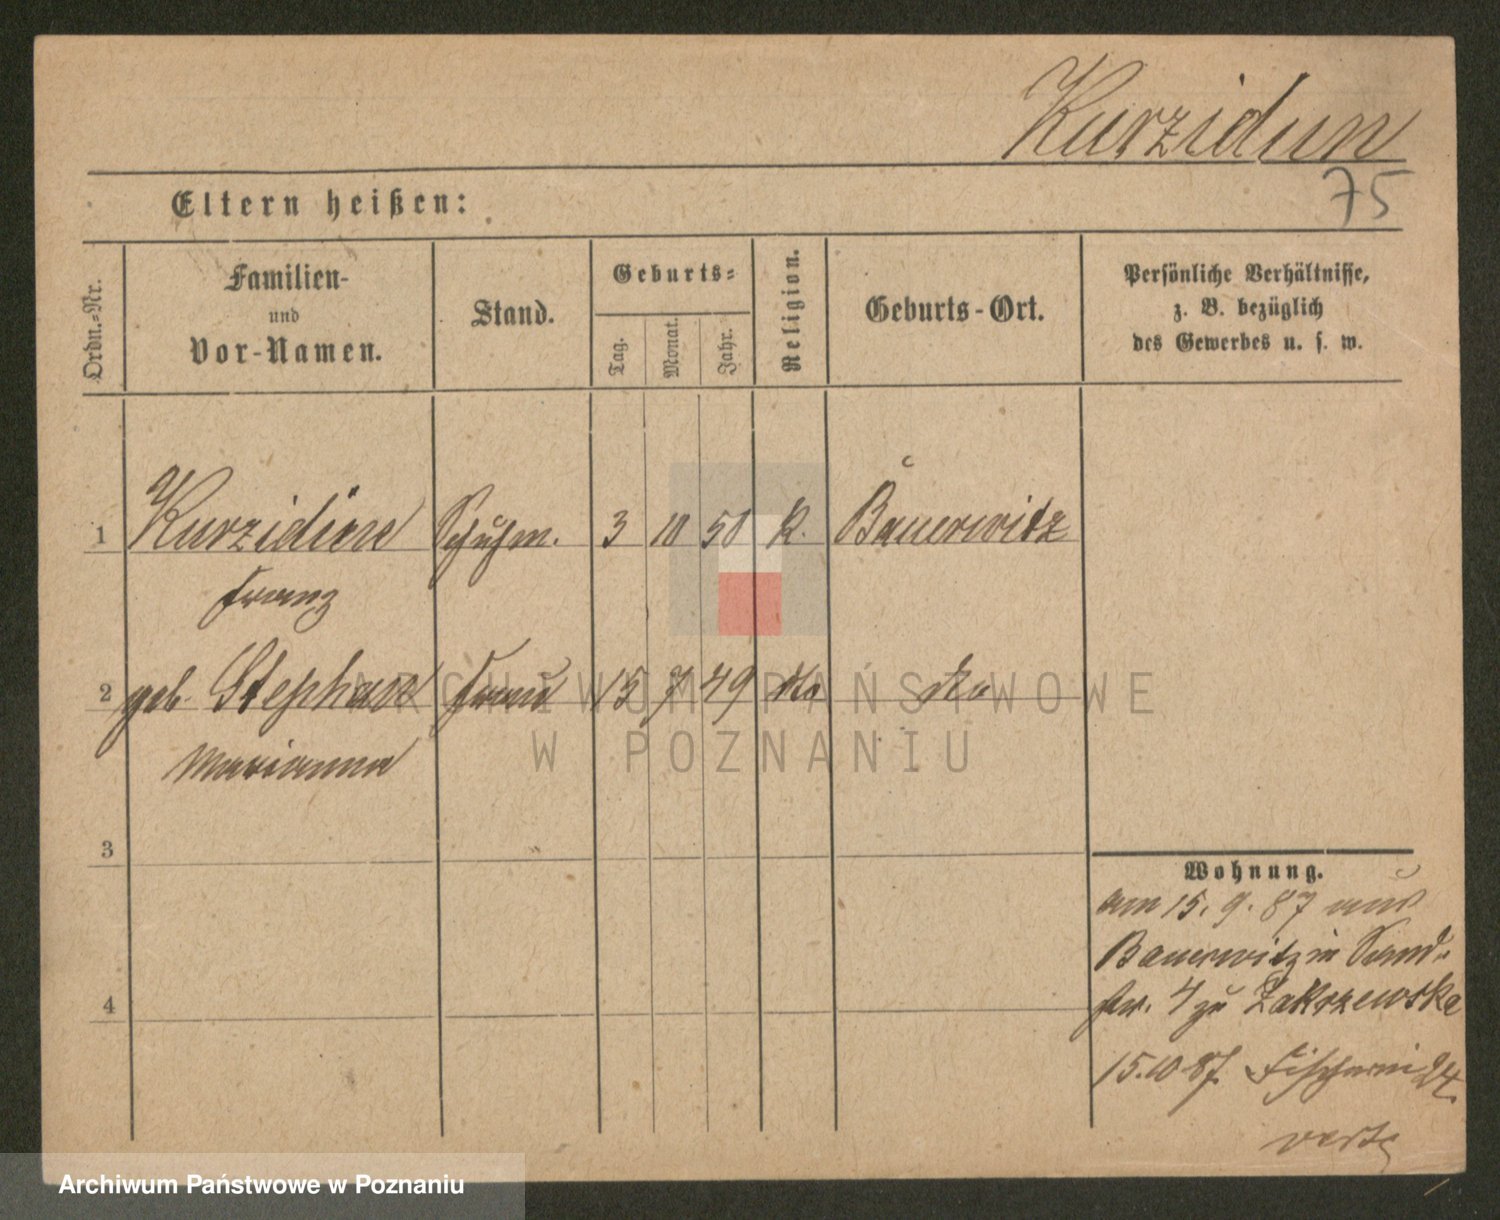 Kurzidim
75
Eltern heißen:
Ordn.-Nr.
Familien-
und
Vor-Namen.
Stand.
Geburts-
Tag.
Monat.
Jahr.
Religion.
Geburts-Ort.
Persönliche Verhältnisse,
z. B. bezüglich
des Gewerbes u. s. w.
1 Kurzidim Schuhm. 3 10 50 k. Bauerwitz
Franz
2 geb. Stephan Frau 15 7 49 dto dto
Marianna
3
4
Wohnung.
am 15. 9. 87 aus
Bauerwitz in Sand-
str. 4 zu Zakrzewska
15.10 87. Fischerei 24.
verte
ARCHIWUM PAŃSTWOWE
W POZNANIU
Archiwum Państwowe w Poznaniu